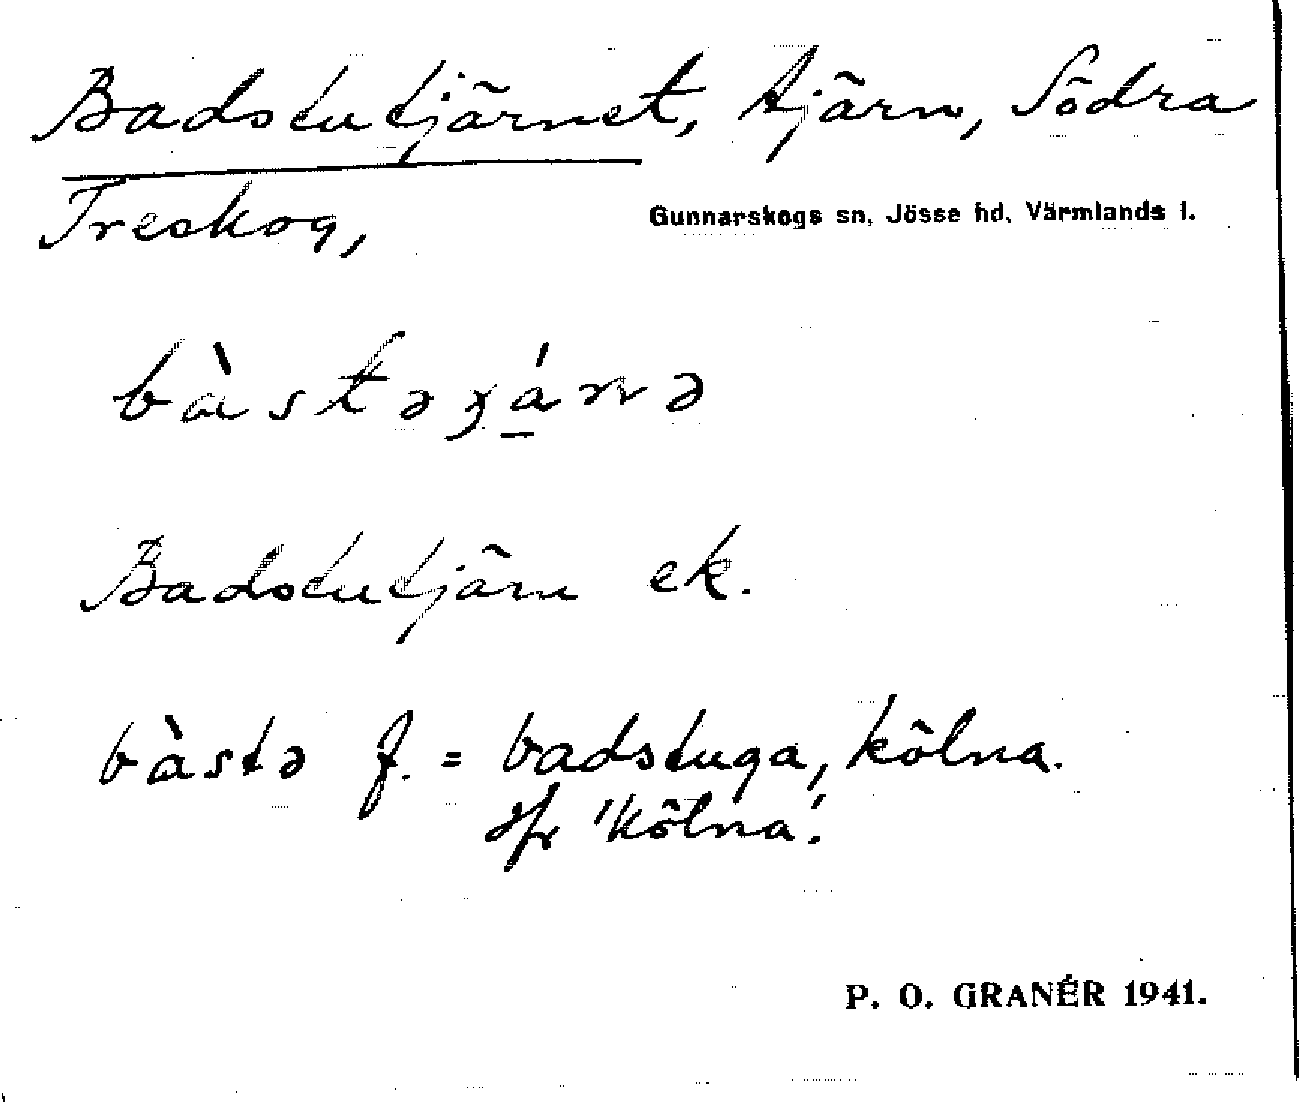 Badstutjärnet, tjärn, Södra
Treskog,
Gunnarskogs sn, Jösse hd, Värmlands l.
bàstəɣá̱rnə
Badstutjärn ek.
bàstə f. = badstuga, kölna.
"kölna".
P. O. GRANÉR 1941.